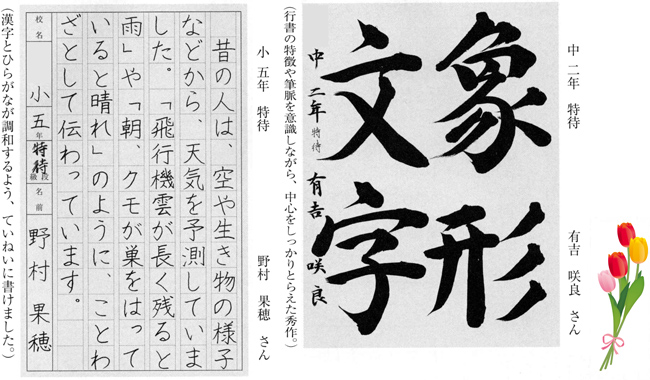 中 二年 特待 有吉 咲良 さん
象形
文字
中二年 特待 有吉 咲良
(行書の特徴や筆脈を意識しながら、中心をしっかりとらえた秀作。)
小 五年 特待 野村 果穂 さん
昔の人は、空や生き物の様子
などから、天気を予測していま
した。「飛行機雲が長く残ると
雨」や「朝、クモが巣をはって
いると晴れ」のように、ことわ
ざとして伝わっています。
校名 小 五年 特待 段級 名前 野村 果穂
(漢字とひらがなが調和するよう、ていねいに書けました。)